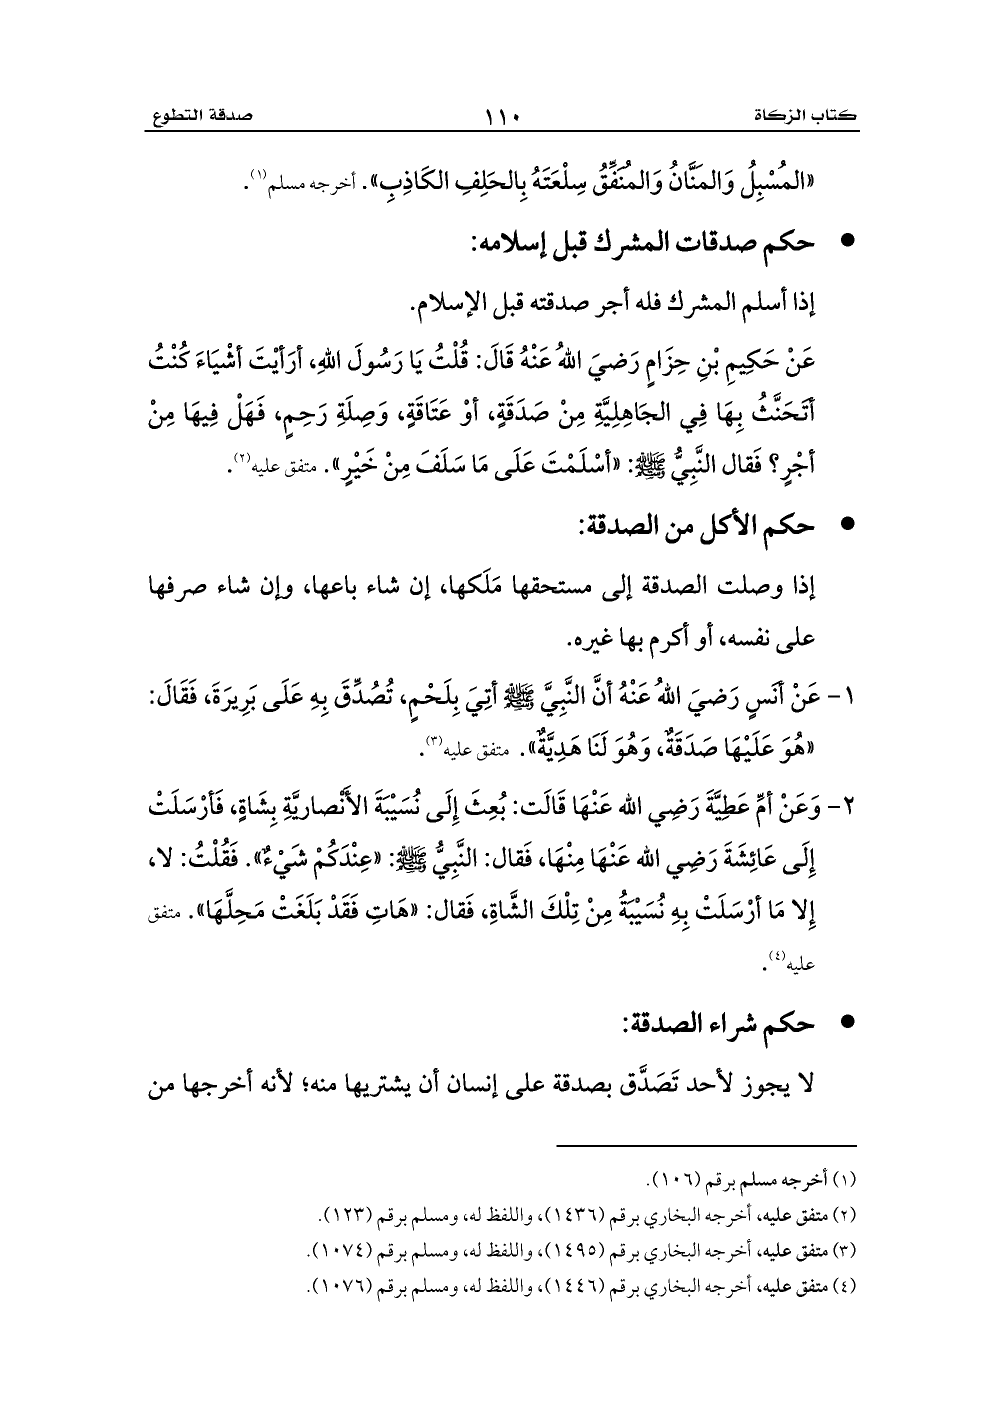 كتاب الزكاة ١١٠ صدقة التطوع
«المُسْبِلُ وَالمَنَّانُ وَالمُنَفِّقُ سِلْعَتَهُ بِالحَلِفِ الكَاذِبِ». أخرجه مسلم(١).
• حكم صدقات المشرك قبل إسلامه:
إذا أسلم المشرك فله أجر صدقته قبل الإسلام.
عَنْ حَكِيمِ بْنِ حِزَامٍ رَضيَ اللهُ عَنْهُ قَالَ: قُلْتُ يَا رَسُولَ اللهِ، أرَأيْتَ أشْيَاءَ كُنْتُ
أتَحَنَّثُ بِهَا فِي الجَاهِلِيَّةِ مِنْ صَدَقَةٍ، أوْ عَتَاقَةٍ، وَصِلَةِ رَحِمٍ، فَهَلْ فِيهَا مِنْ
أجْرٍ؟ فَقال النَّبِيُّ ﷺ: «أسْلَمْتَ عَلَى مَا سَلَفَ مِنْ خَيْرٍ». متفق عليه(٢).
• حكم الأكل من الصدقة:
إذا وصلت الصدقة إلى مستحقها مَلَكها، إن شاء باعها، وإن شاء صرفها
على نفسه، أو أكرم بها غيره.
١- عَنْ أنَسٍ رَضيَ اللهُ عَنْهُ أنَّ النَّبِيَّ ﷺ أتِيَ بِلَحْمٍ، تُصُدِّقَ بِهِ عَلَى بَرِيرَةَ، فَقَالَ:
«هُوَ عَلَيْهَا صَدَقَةٌ، وَهُوَ لَنَا هَدِيَّةٌ». متفق عليه(٣).
٢- وَعَنْ أمِّ عَطِيَّةَ رَضِي الله عَنْهَا قَالَت: بُعِثَ إِلَى نُسَيْبَةَ الأَنْصاريَّةِ بِشَاةٍ، فَأرْسَلَتْ
إِلَى عَائِشَةَ رَضِي الله عَنْهَا مِنْهَا، فَقال: النَّبِيُّ ﷺ: «عِنْدَكُمْ شَيْءٌ». فَقُلْتُ: لا،
إِلا مَا أرْسَلَتْ بِهِ نُسَيْبَةُ مِنْ تِلْكَ الشَّاةِ، فَقال: «هَاتِ فَقَدْ بَلَغَتْ مَحِلَّهَا». متفق
عليه(٤).
• حكم شراء الصدقة:
لا يجوز لأحد تَصَدَّق بصدقة على إنسان أن يشتريها منه؛ لأنه أخرجها من
(١) أخرجه مسلم برقم (١٠٦).
(٢) متفق عليه، أخرجه البخاري برقم (١٤٣٦)، واللفظ له، ومسلم برقم (١٢٣).
(٣) متفق عليه، أخرجه البخاري برقم (١٤٩٥)، واللفظ له، ومسلم برقم (١٠٧٤).
(٤) متفق عليه، أخرجه البخاري برقم (١٤٤٦)، واللفظ له، ومسلم برقم (١٠٧٦).